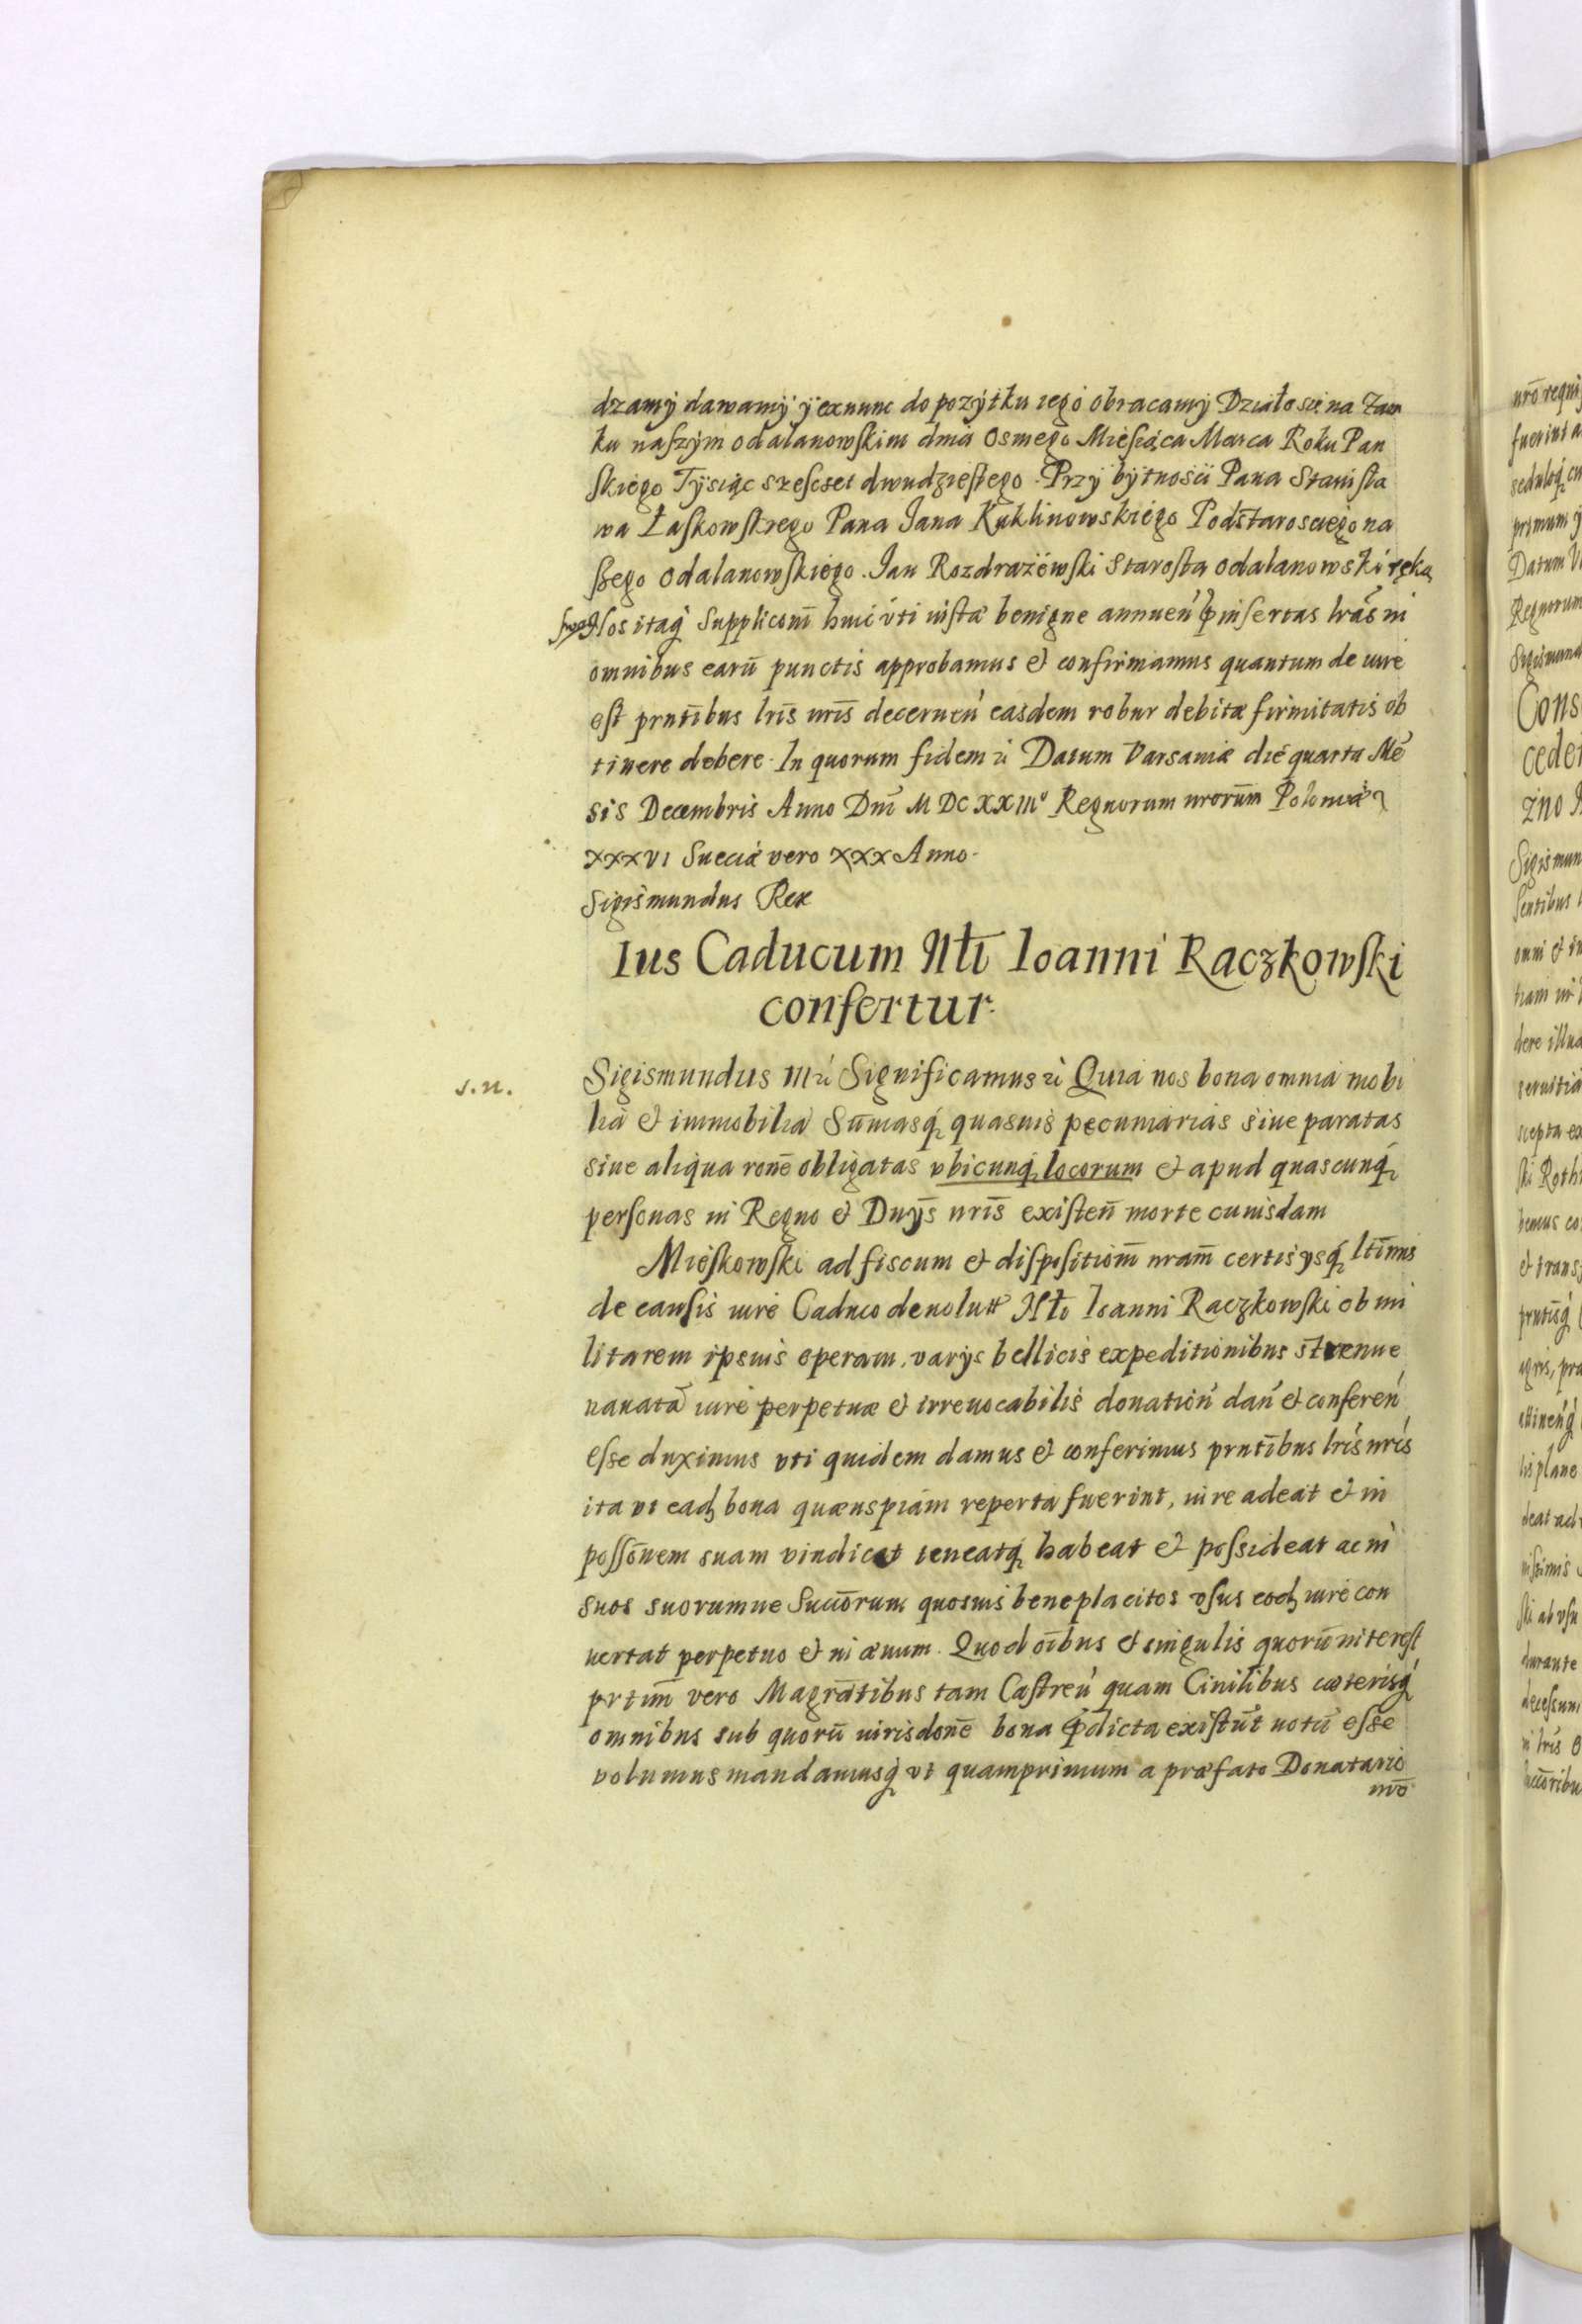 dzamÿ dawamÿ ÿ exnunc do pozÿtku iego obracamÿ Działo sei na Zam
ku naszÿm odalanowskim dnia osmego Miesiąca Marca Roku Pan
skiego Tÿsiąc szescset dwudziestego. Przÿ bÿtnoscii Pana Stanisła
wa Łaskowskiego Pana Jana Kuklinowskiego Podstarosciego na
szego odalanowskiego. Jan Rozdrażewski Starosta odalanowski ręką
swą Nos itaq́ Supplicōni huic vti iustæ benigne annuen̄ p̄insertas lrās in
omnibus earū punctis approbamus & confirmamus quantum de iure
est prntībus lrīs nrīs decernen̄ easdem robur debitæ firmitatis ob
tinere debere. In quorum fidem ꝛc̄ Datum Varsauiæ die quarta Mē
sis Decembris Anno Dnī M DC XX IIIº Regnorum nrorūm Poloniæ
XXXVI Sueciæ vero XXX Anno.
Sigismundus Rex
Ius Caducum Nłi Ioanni Raczkowski
confertur.
s.n.
Sigismundus III ꝛc̄ Significamus ꝛc̄ Quia nos bona omnia mobi
lia & immobilia Sūmasq́ quasuis pecuniarias siue paratas
siue aliqua ronē obligatas vbicunq́ locorum & apud quascunq́
personas in Regno & Dnÿs nrīs existen̄ morte cuiusdam
Mieskowski ad fiscum & dispositiōm nrām certis ÿsq́ ltīmis
de causis iure Caduco deuolutt Nłto Ioanni Raczkowski ob mi
litarem ipsuis operam, varÿs bellicis expeditionibus strenue
nauatā iure perpetuæ & irreuocabilis donation̄ dan̄ & conferen̄
esse duximus vti quidem damus & conferimus prntībus lrīs nrīs
ita vt eadȝ bona quænspiam reperta fuerint, iure adeat & in
possōnem suam vindicet teneatq́ habeat & possideat ac in
suos suorumue Succōrum quosuis beneplacitos vsus eodȝ iure con
uertat perpetuo & in æuum. Quod oībus & singulis quorū interest
prtīm vero Magrātibus tam Castren̄ quam Ciuilibus cæterisq́
omnibus sub quorū iurisdonē bona p̄dicta existūt notū esse
volumus mandamusq́ vt quamprimum a præfato Donatario
mō